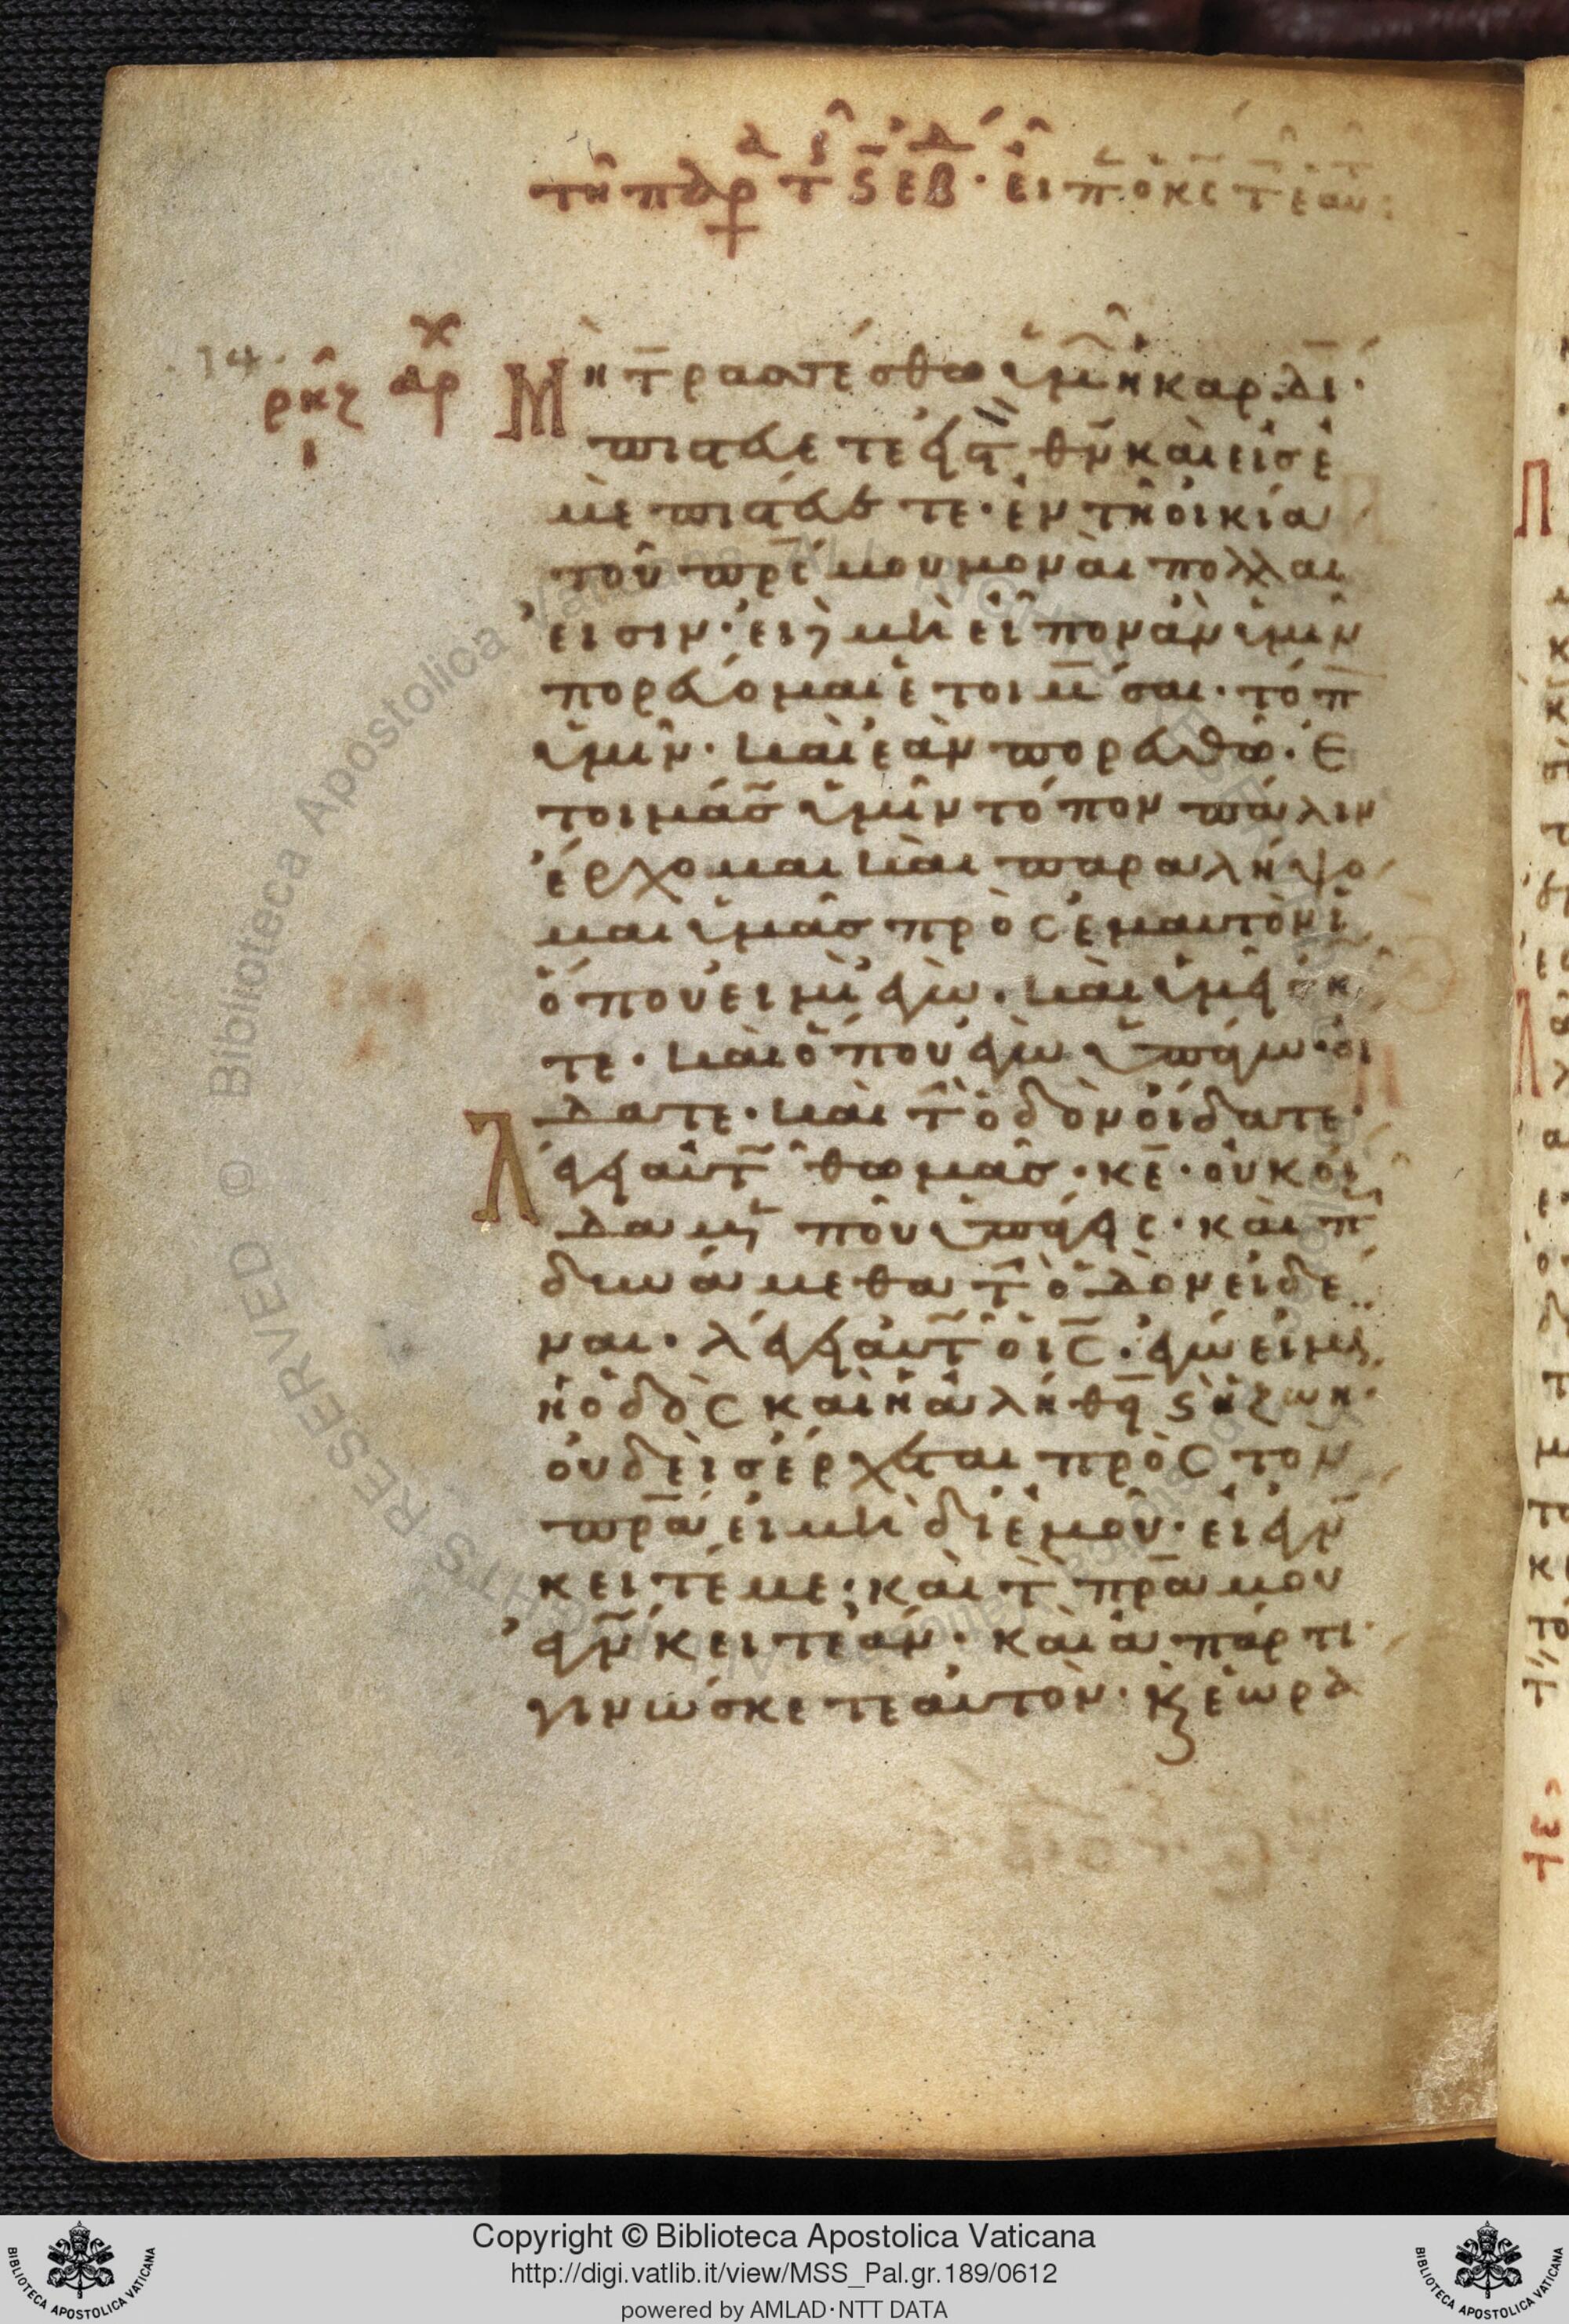 τῆ παρ τ ϛ εβ · εἰπ ὁ κς τ ε αυ :
14. ρκζ ἀρχ
Μὴ τρασσέσθω ὑμῶν ἡ καρδί·
πιστεύετε εἰς τ θν καὶ εἰς ἐ
μὲ πιστεύετε · ἐν τῆ οἰκία
τοῦ πρς μου μοναὶ πολλαι
εἰσιν · εἰ δ μὴ εἶπον ἂν ὑμῖν
πορεύομαι ἑτοιμάσαι · τόπ
ὑμῖν · καὶ ἐὰν πορευθῶ · ἑ
τοιμάσ ὑμῖν τόπον πάλιν
ἔρχομαι καὶ παραλήψο
μαι ὑμᾶσ πρὸς ἐμαυτὸν ἵ
ὅπου εἰμὶ ἐγὼ · καὶ ὑμεῖς ἦ
τε · καὶ ὅπου ἐγὼ ὑπάγω · οἴ
δατε · καὶ τ ὁδὸν οἴδατε ·
Λέγει αὐτ θωμᾶσ · κε · οὐκ οἴ
δαμεν ποῦ ὑπάγεις · καὶ π
δυνάμεθα τ ὁδὸν εἰδέ
ναι · λέγει αὐτ ὁ ις · ἐγώ εἰμι
ἡ ὁδὸς καὶ ἡ ἀλήθεια ϛ ἡ ζωή ·
οὐδεὶσ ἔρχεται πρὸς τὸν
πρα εἰ μὴ δι ἐμοῦ · εἰ ἐγν
κειτέ με · καὶ τ πρα μου
ἐγνκειτε ἄν · καὶ ἀπάρτι
γινώσκετε αὐτὸν · κ ἑωρά
Copyright © Biblioteca Apostolica Vaticana
http://digi.vatlib.it/view/MSS_Pal.gr.189/0612
powered by AMLAD·NTT DATA